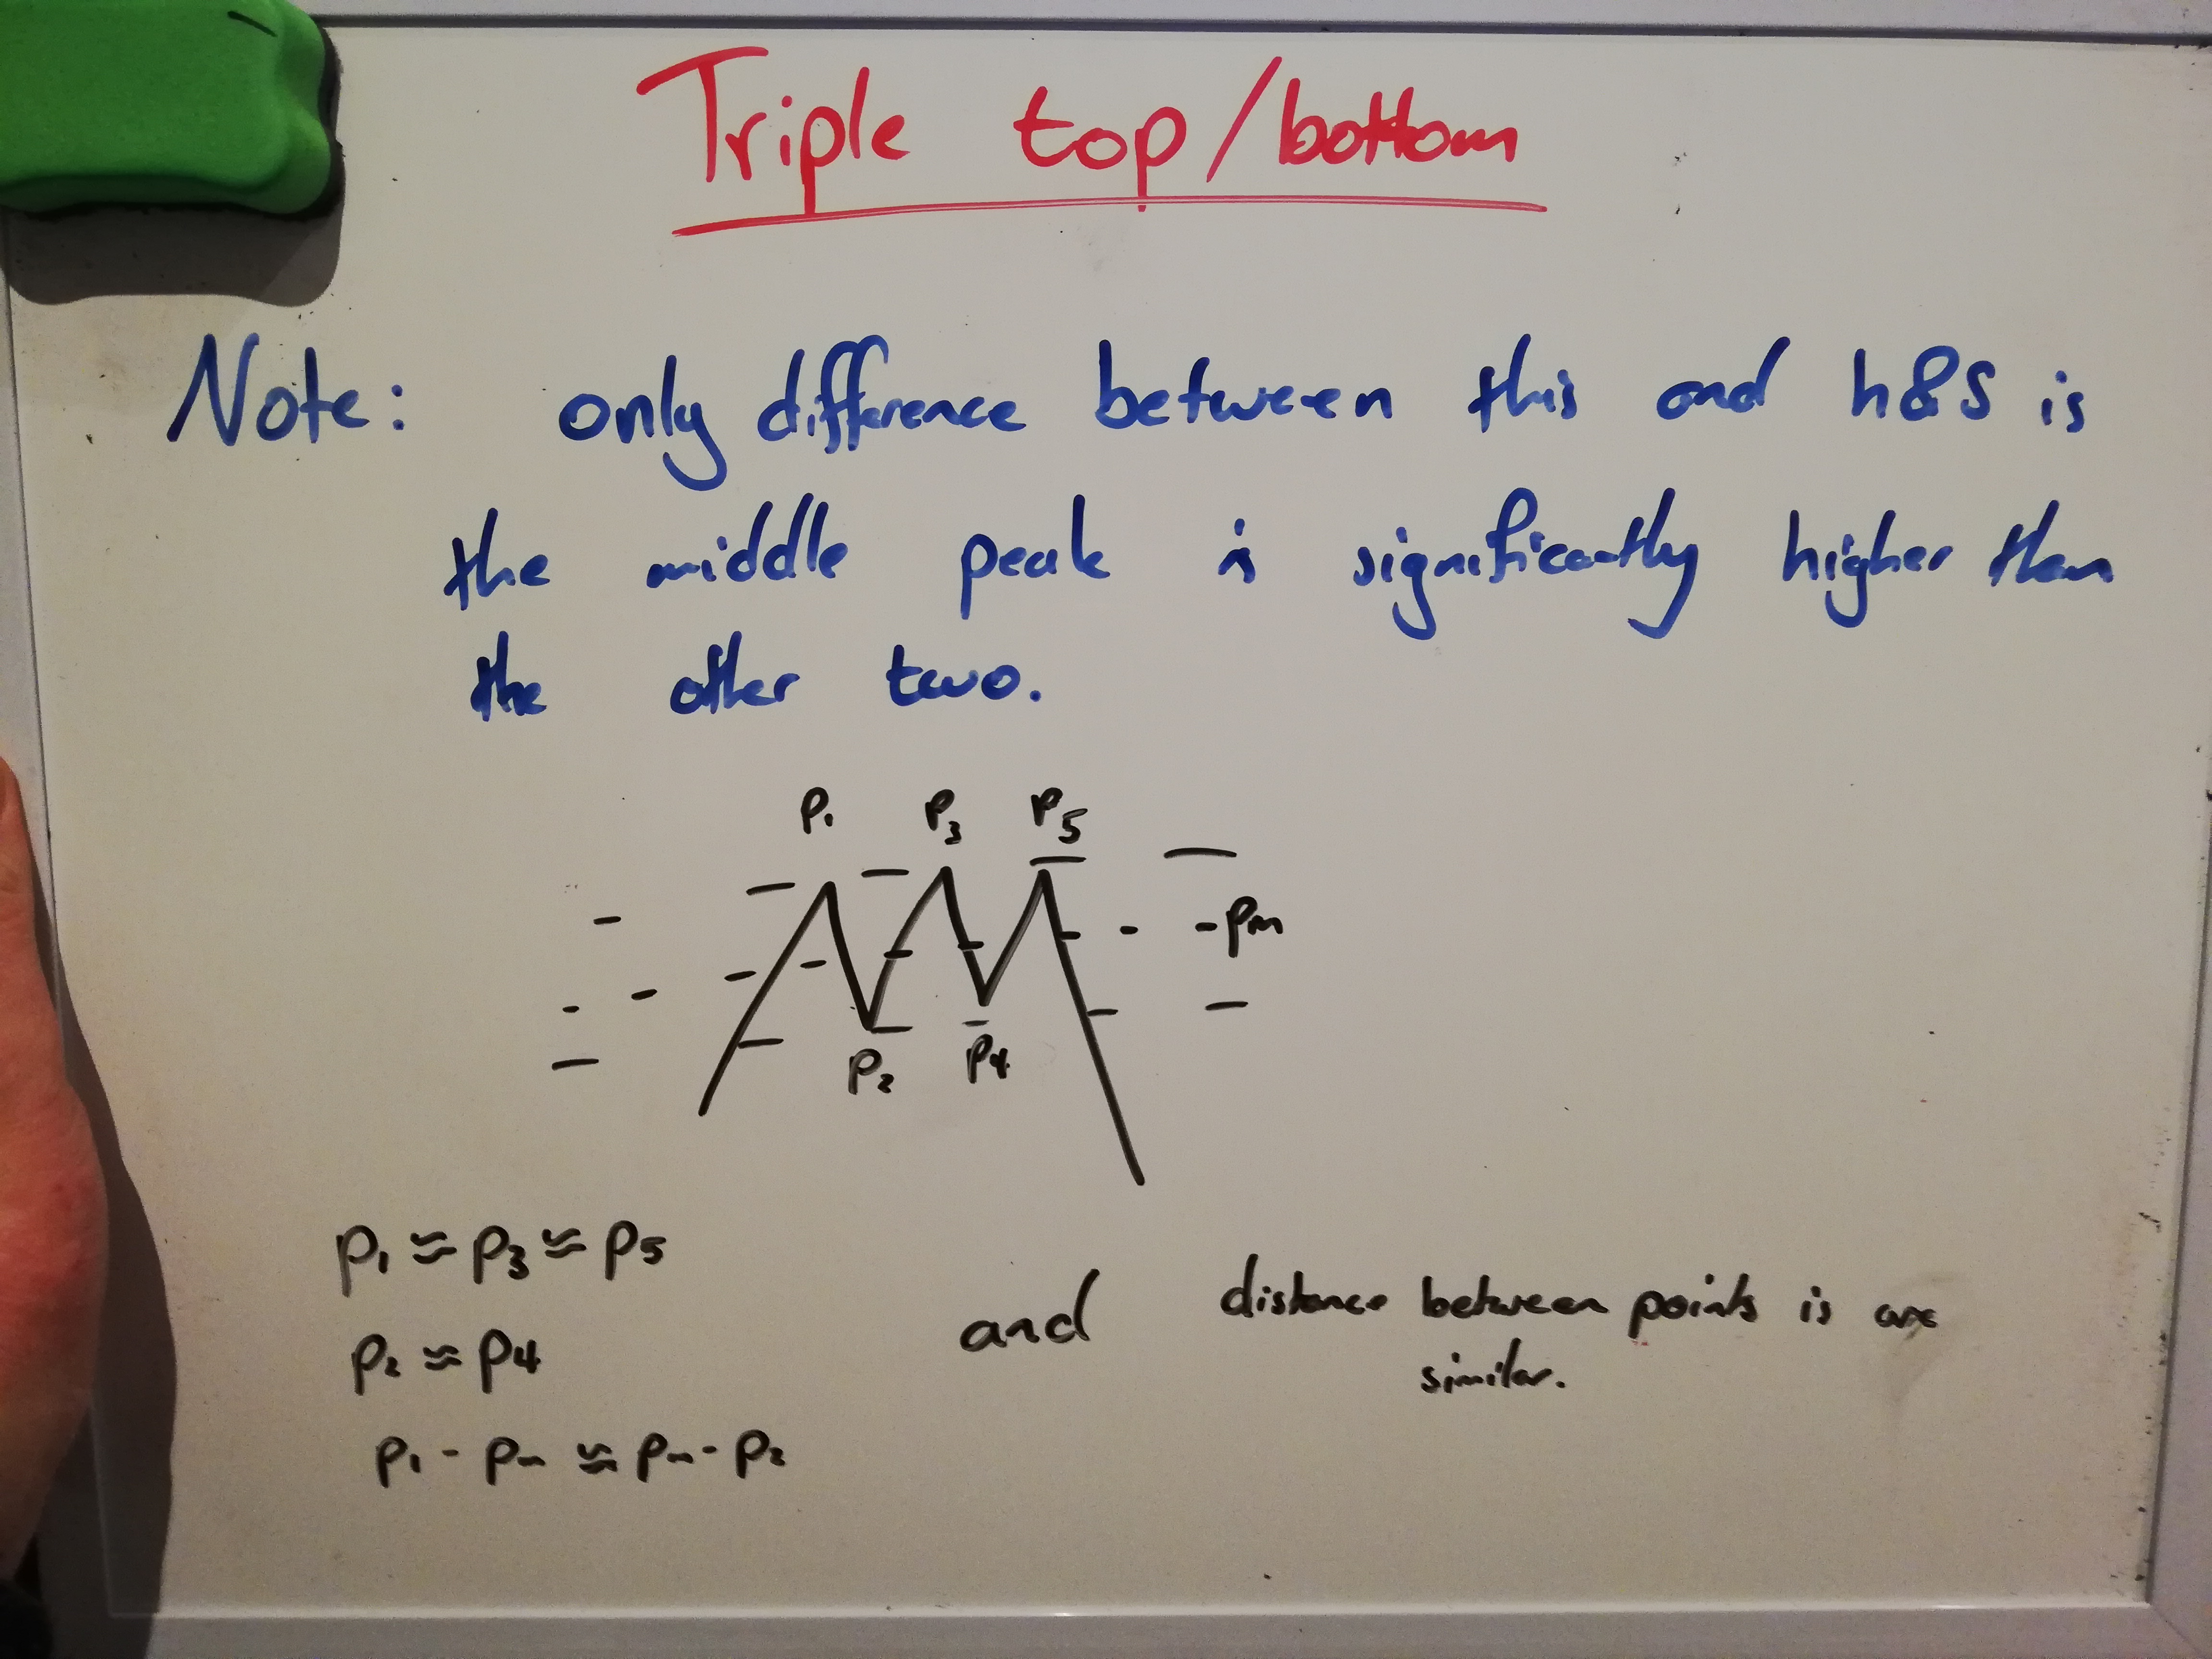 Triple top/bottom
Note: only difference between this and h&S is
the middle peak is significantly higher than
the other two.
P₁ P₃ P₅
Pm
P₂ P₄
P₁ ≈ P₃ ≈ P₅
P₂ ≈ P₄
P₁ - Pm ≈ Pm - P₂
and
distance between points is are
similar.